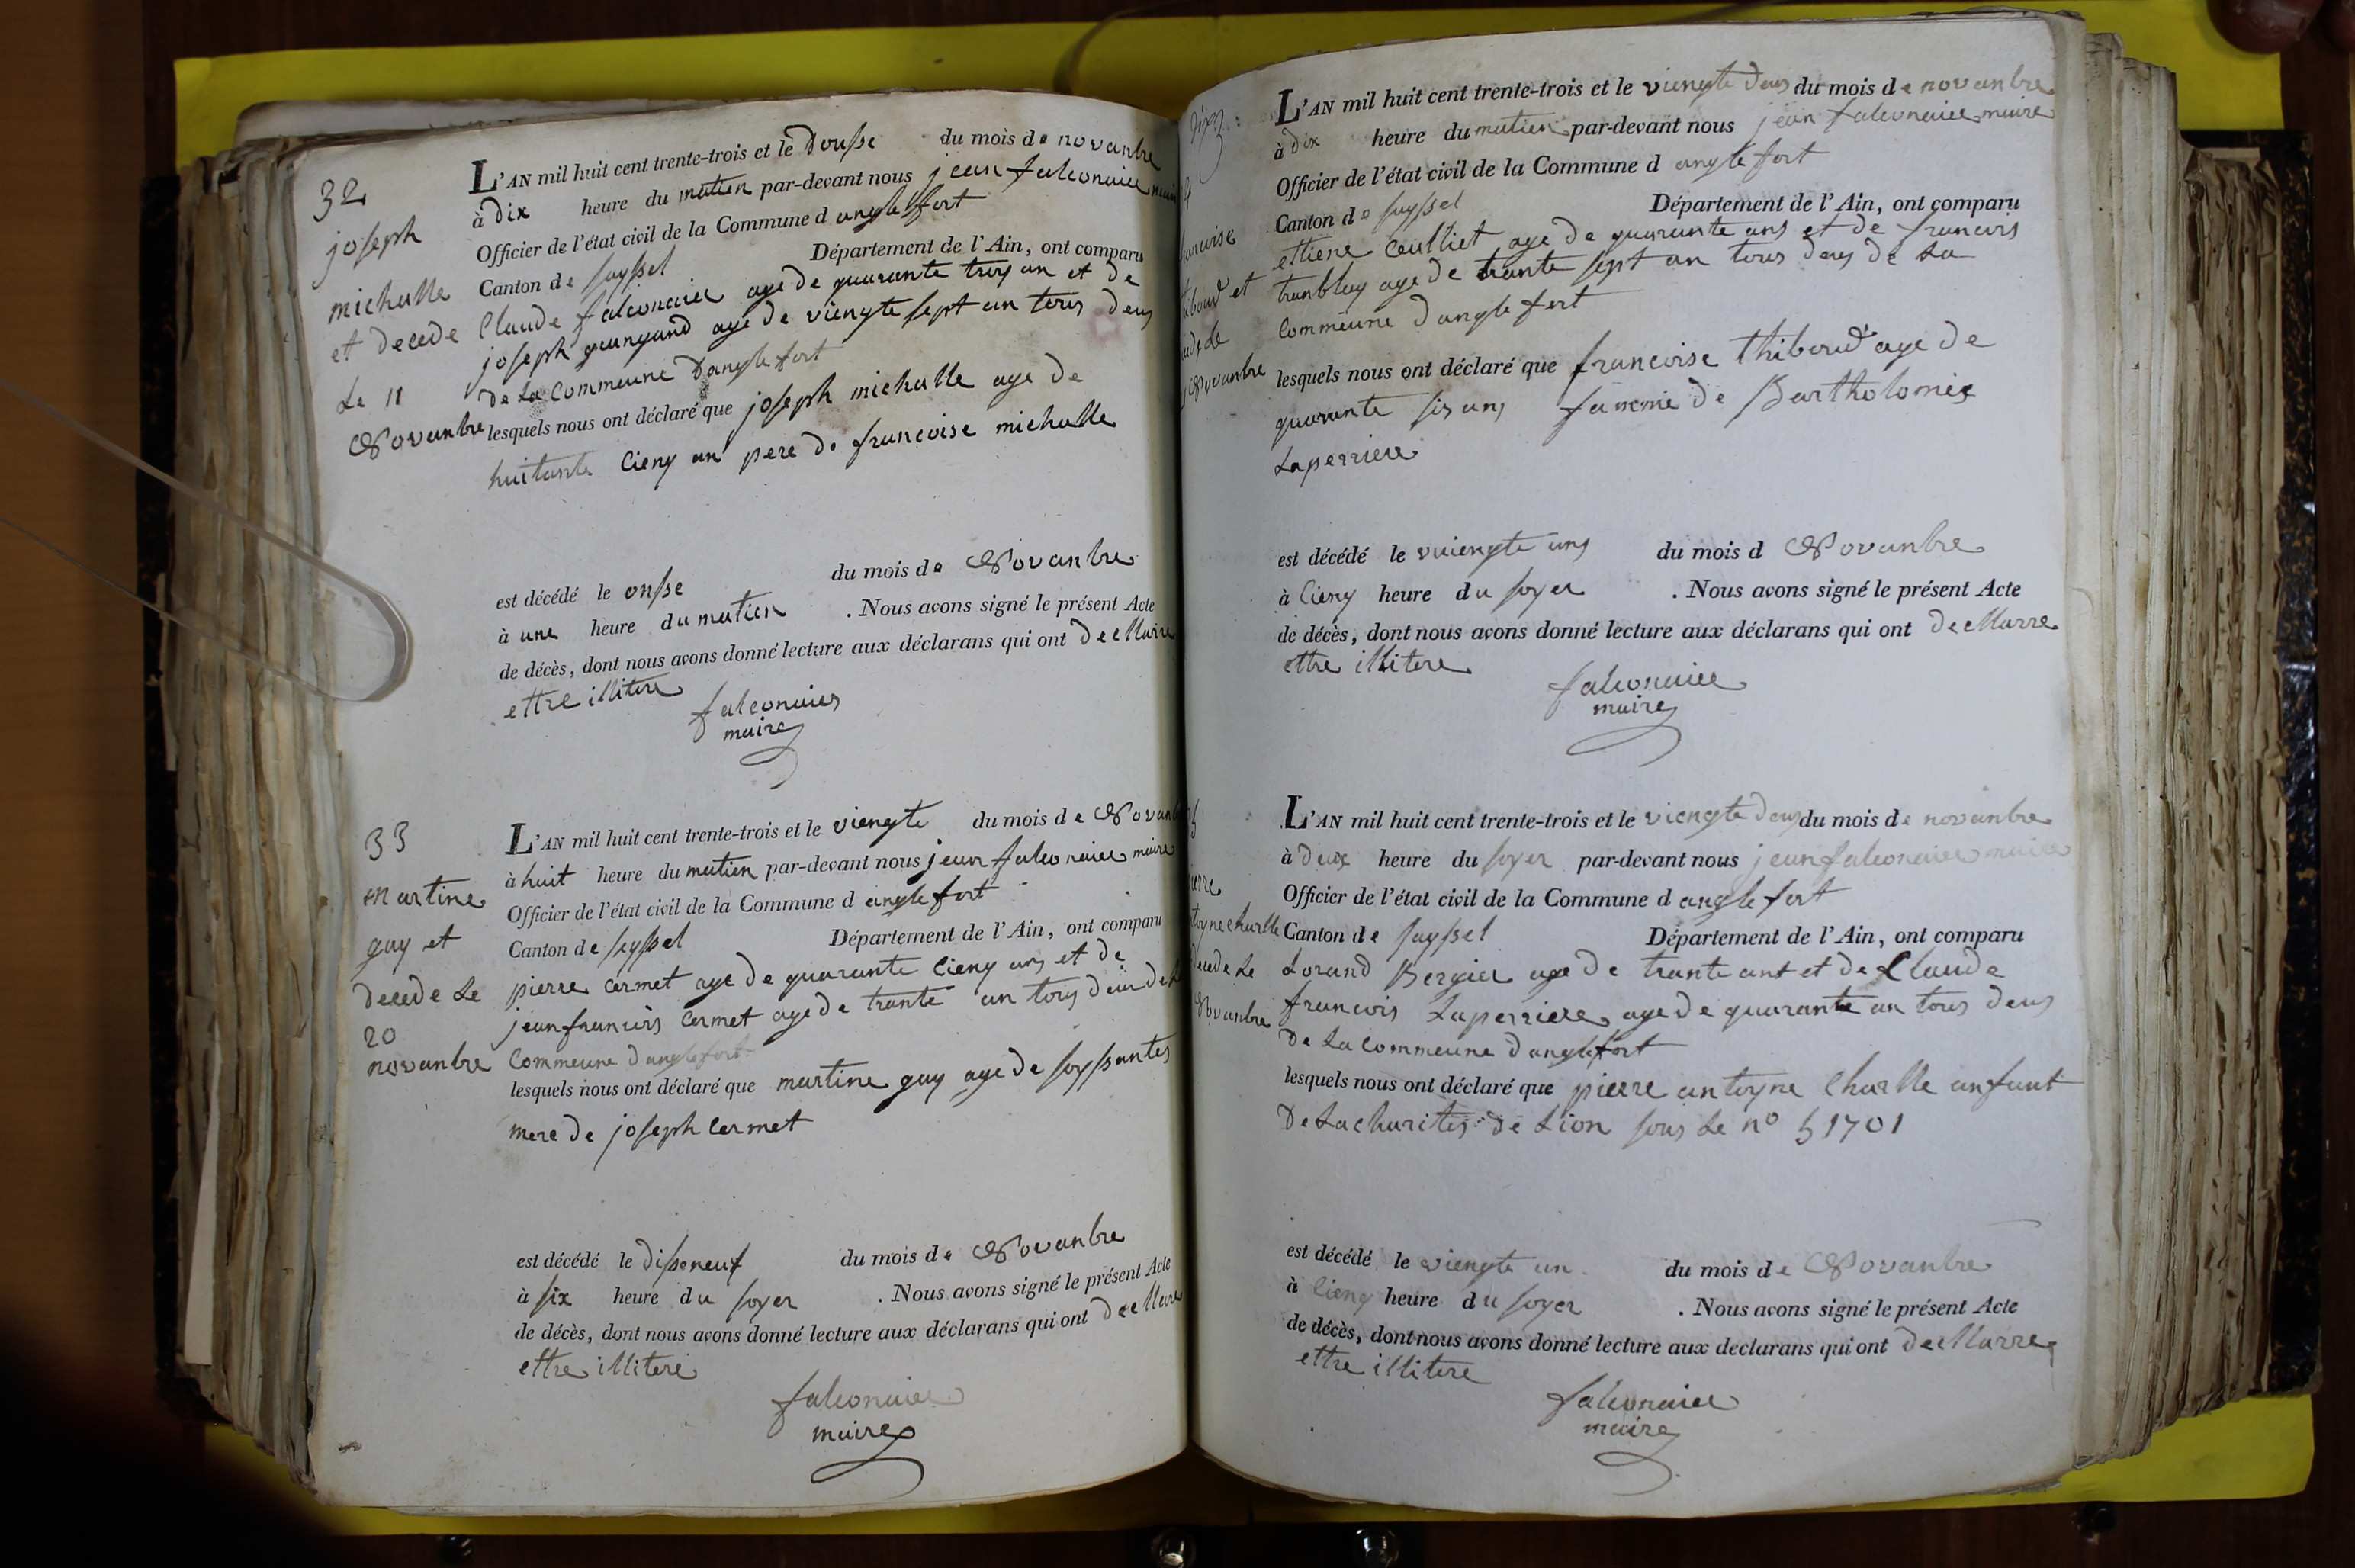 32
joseph
michalle
et decede
Le 11
Novanbre
L'AN mil huit cent trente-trois et le dousse du mois de novanbre
à dix heure du matien par-devant nous jean falconaier maire
Officier de l'état civil de la Commune d anglefort
Canton de suyssel Département de l'Ain, ont comparu
Claude falconaier age de quarante troy an et de
joseph age de viengte sept an tous deus
de La commeune Danglefort
lesquels nous ont déclaré que joseph michalle age de
huitante cienq an pere de francoise michalle
est décédé le onsse du mois de Novanbre
à une heure du matien . Nous avons signé le présent Acte
de décès, dont nous avons donné lecture aux déclarans qui ont decllarre
ettre illitere
falconaier
maire
33
martine
guy et
decede Le
20
novanbre
L'AN mil huit cent trente-trois et le viengte du mois de Novanbre
à huit heure du matien par-devant nous jean falconaier maire
Officier de l'état civil de la Commune d anglefort
Canton de seyssel Département de l'Ain, ont comparu
pierre cermet age de quarante cienq ans et de
jean francois cermet age de trante an tous deus de
commeune danglefort
lesquels nous ont déclaré que martine guy age de soyssantes
mere de joseph cermet
est décédé le disseneuf du mois de Novanbre
à six heure du soyer . Nous avons signé le présent Acte
de décès, dont nous avons donné lecture aux déclarans qui ont decllarre
ettre illitere
falconaier
maire
L'AN mil huit cent trente-trois et le viengte deus du mois de novanbre
à dix heure du matien par-devant nous jean falconaier maire
Officier de l'état civil de la Commune d anglefort
Canton de suyssel Département de l'Ain, ont comparu
ettiene Culliet age de quarante ans et de francois
tranblay age de trante sept an tous deus de La
commeune danglefort
lesquels nous ont déclaré que francoise thiboud age de
quarante sis ans famme de Bartholomix
Laperriere
est décédé le viengte uns du mois d Novanbre
à cienq heure du soyer . Nous avons signé le présent Acte
de décès, dont nous avons donné lecture aux déclarans qui ont decllarre
ettre illitere
falconaier
maire
L'AN mil huit cent trente-trois et le viengte deus du mois de novanbre
à deux heure du soyer par-devant nous jean falconaier maire
Officier de l'état civil de la Commune d anglefort
Canton de suyssel Département de l'Ain, ont comparu
Lorand Bergier age de trante ant et de Claude
francois Laperriere age de quarante an tous deus
de La commeune danglefort
lesquels nous ont déclaré que pierre antoyne Charlle anfant
De La charites de Lion sous Le n° 51701
est décédé le viengte un du mois de Novanbre
à cienq heure du soyer . Nous avons signé le présent Acte
de décès, dont nous avons donné lecture aux declarans qui ont decllarre
ettre illitere
falconaier
maire